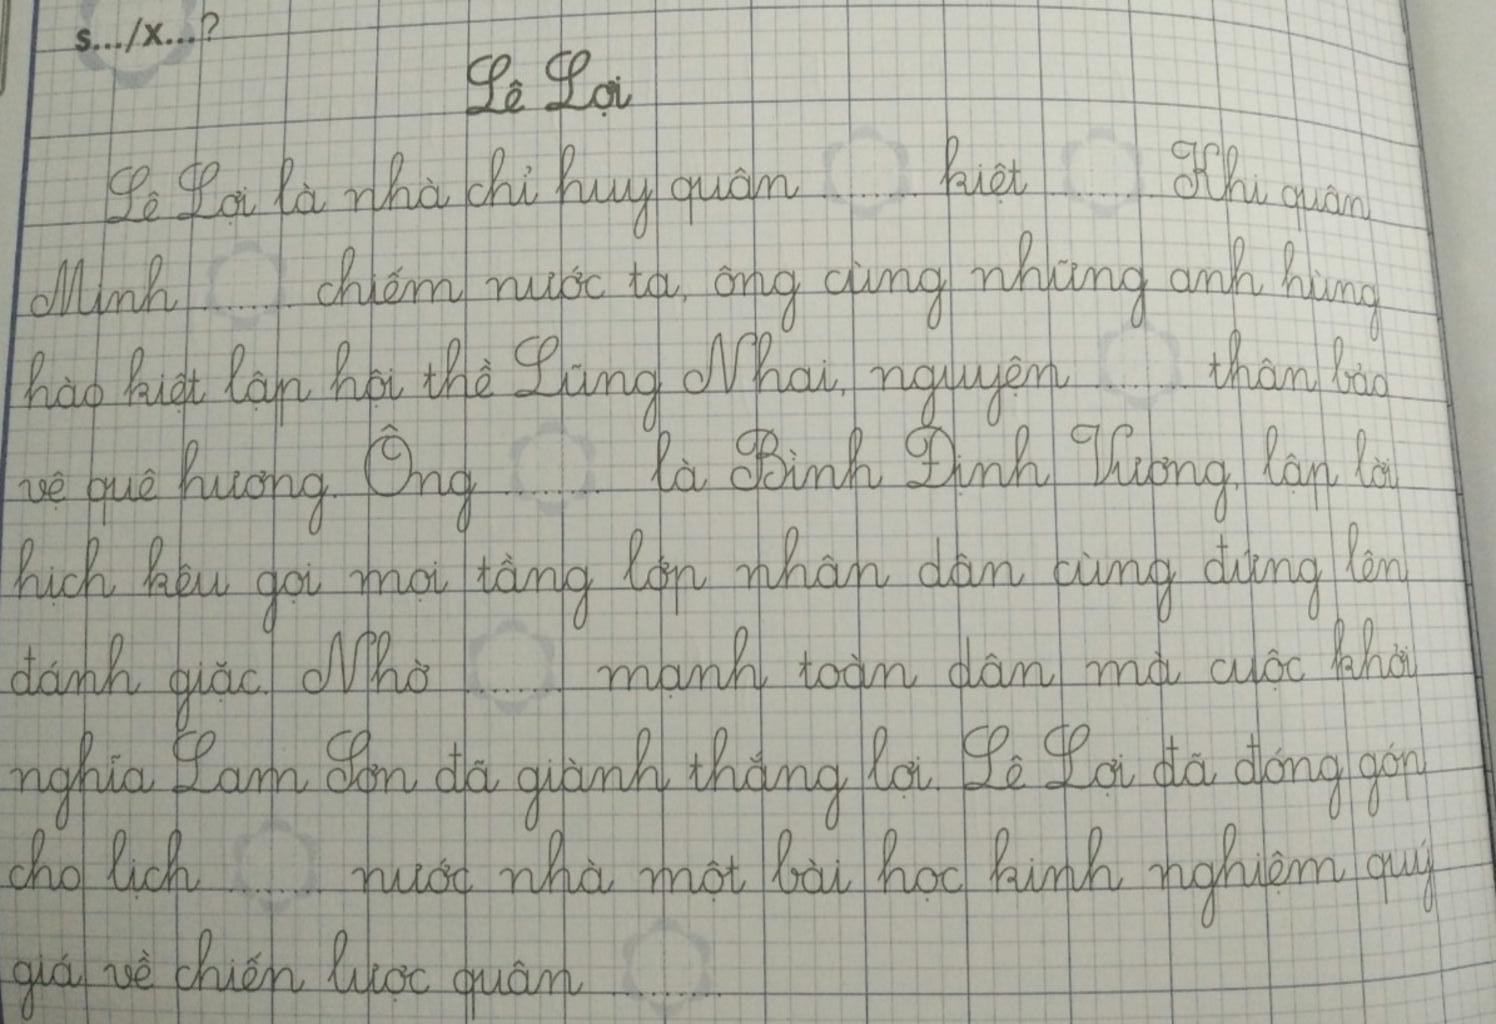 s.../x...?
Lê Lợi
Lê Lợi là nhà chỉ huy quân ...... kiệt ...... Khi quân
Minh ...... chiếm nước ta, ông cùng những anh hùng
hào kiệt lập hội thề Lũng Nhai, nguyện ...... thân bảo
vệ quê hương. Ông ...... là Bình Định Vương, lập lời
hịch kêu gọi mọi tầng lớp nhân dân cùng đứng lên
đánh giặc. Nhờ ...... mạnh toàn dân mà cuộc khởi
nghĩa Lam Sơn đã giành thắng lợi. Lê Lợi đã đóng góp
cho lịch ...... nước nhà một bài học kinh nghiệm quý
giá về chiến lược quân ......